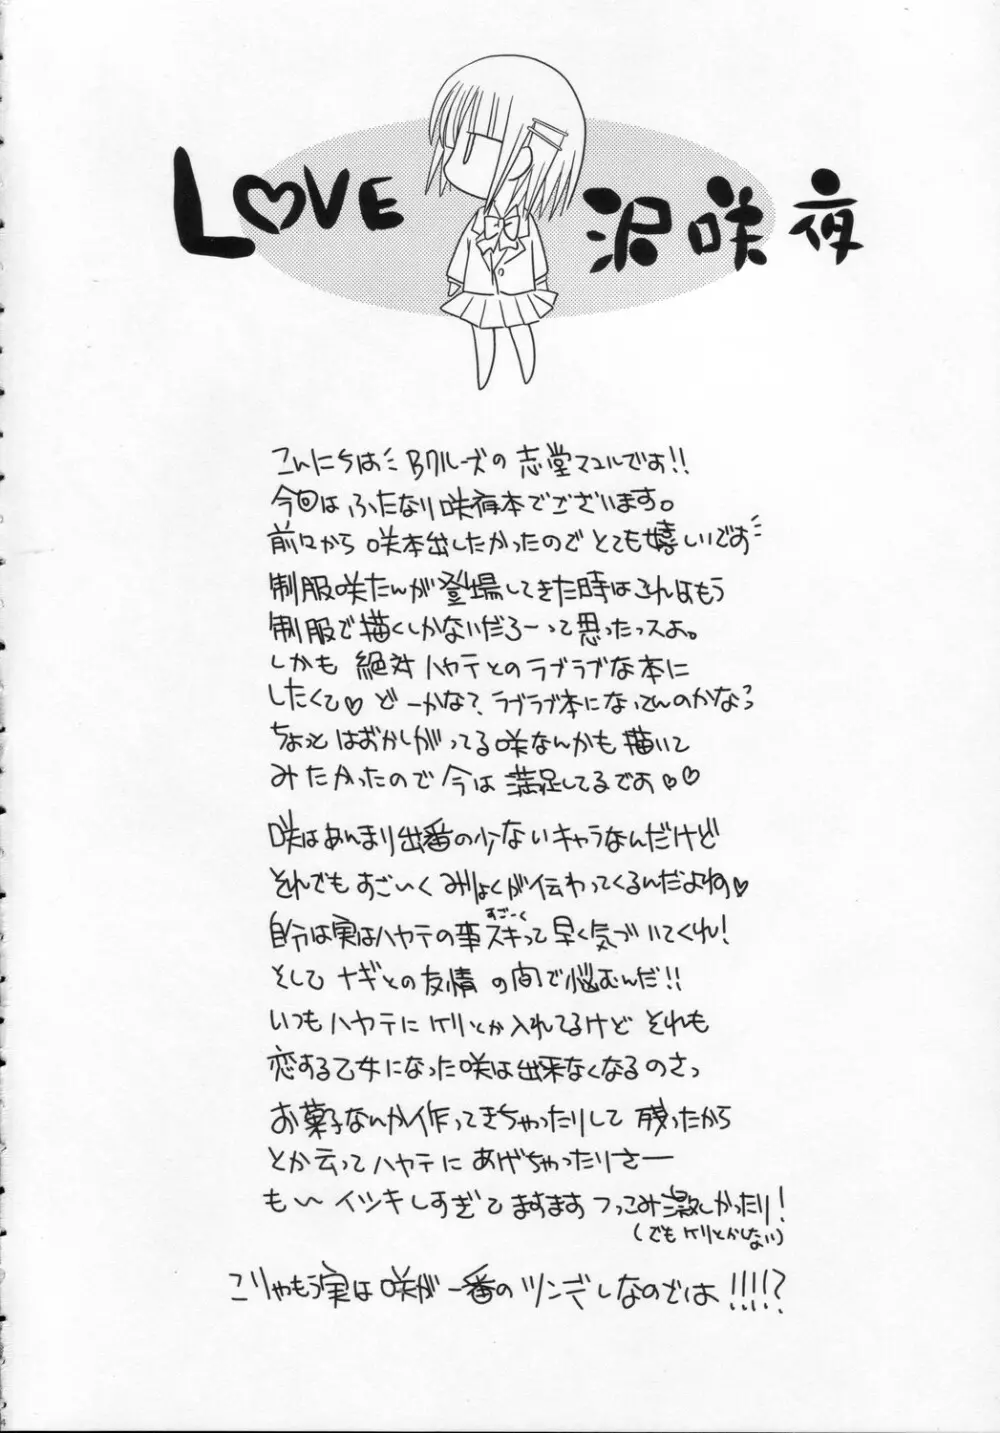 LOVE 沢咲夜
こんにちは Bクルーズの 志堂マユルです!!
今回は ふたなり 咲夜本でございます。
前々から 咲本出したかったので とても嬉しいです
制服咲たんが登場してきた時はこれはもう
制服で描くしかないだろーって思ったっスよ。
しかも 絶対 ハヤテとの ラブラブな本に
したくて♡ どーかな? ラブラブ本になってんのかなっ
ちょっと はおかしがってる咲なんかも 描いて
みたかったので 今は 満足してるです♡♡
咲はあんまり出番の少ないキャラなんだけど
それでも すごいく みりょくが伝わってくるんだよね♡
自分は実はハヤテの事スキって 早く気づいてくれ!
すごーく
そして ナギとの友情 の間で悩むんだ!!
いつもハヤテに ケリとか入れてるけど それも
恋する乙女になった咲は出来なくなるのさっ
お菓子なんか作ってきちゃったりして 残ったから
とか云ってハヤテに あげちゃったりさー
も〜 イシキしすぎて ますます つっこみ激しかったり!
(でもケリとかしない)
こりゃもう実は 咲が一番の ツンデレなのでは!!!!?